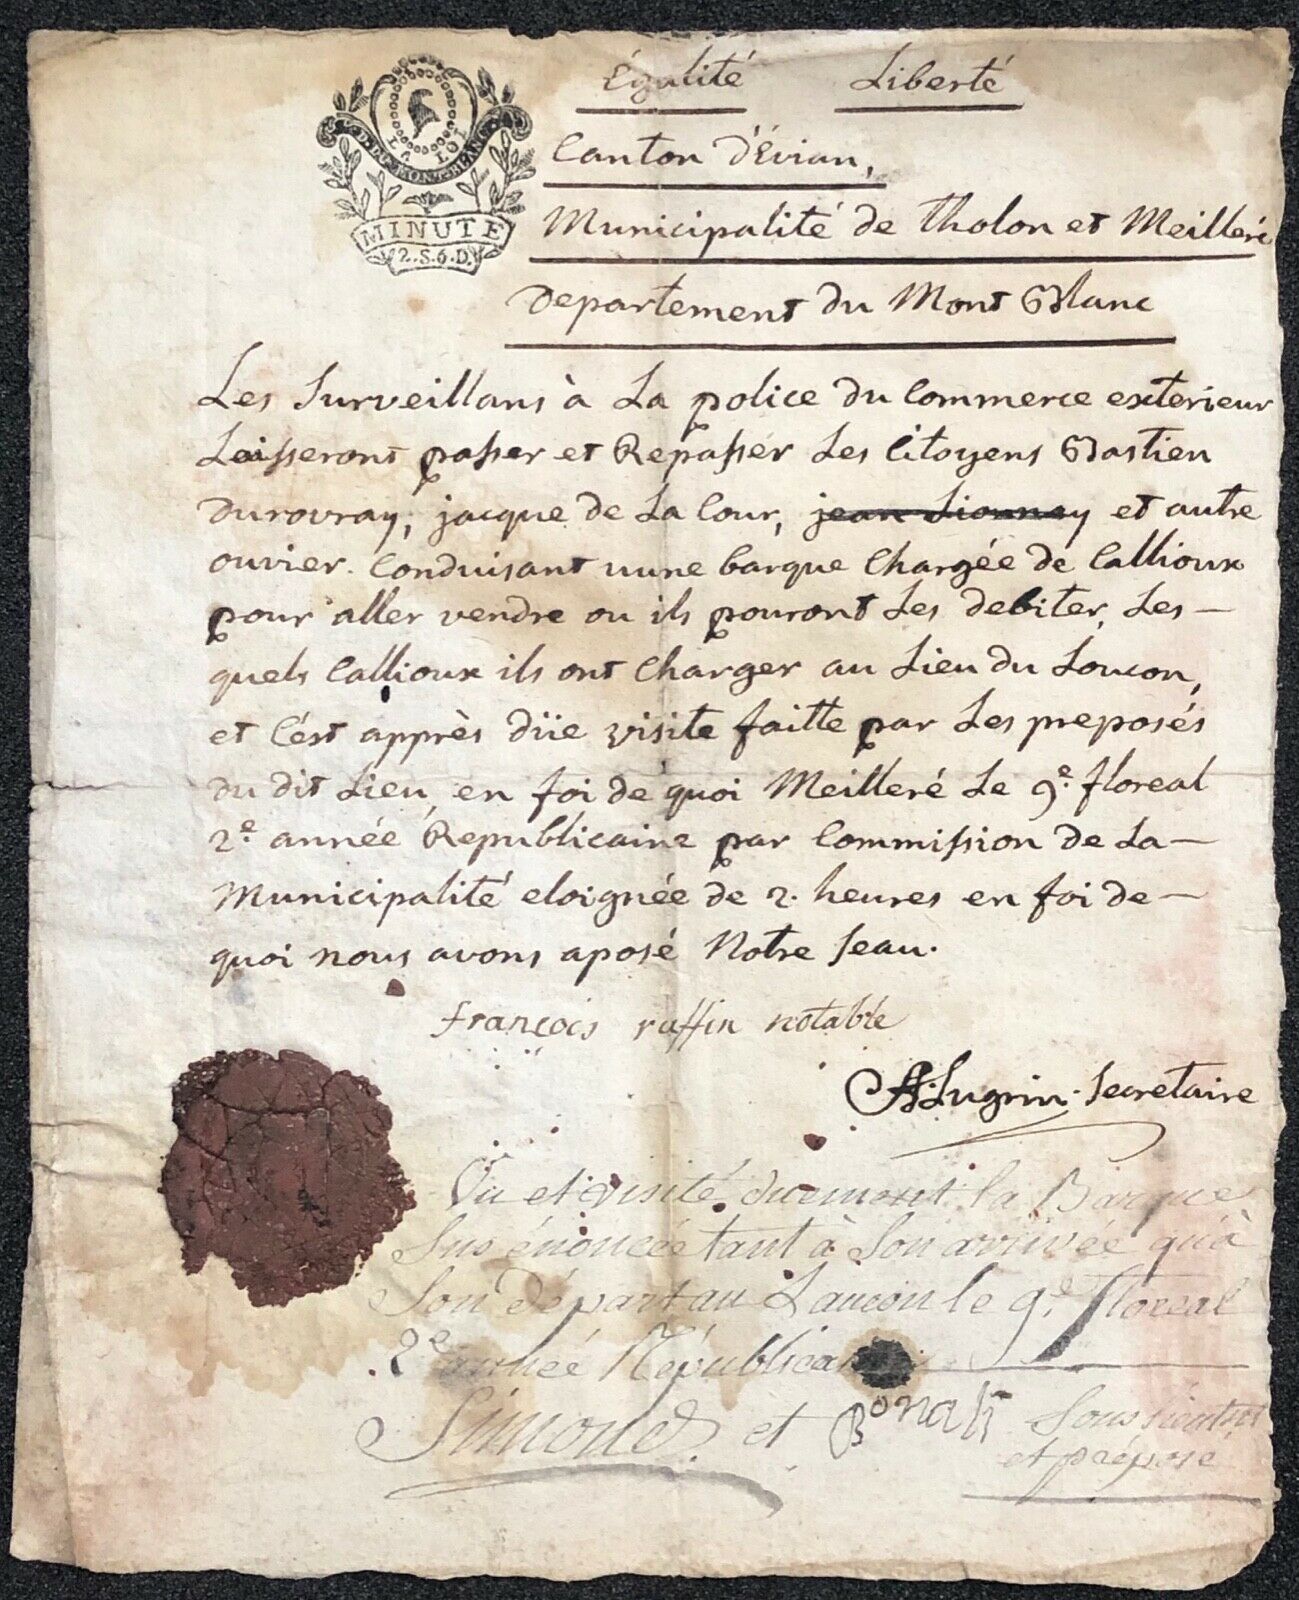 Égalité Liberté
D. DU MONT-BLANC
LA LOI
MINUTE
2.S.6.D.
Canton d'Évian,
Municipalité de Tholon et Meilleri
Departement du Mont Blanc
Les Surveillans à La police du Commerce exterieur
Laisseront passer et Repasser Les Citoyens Bastien
Durovray, jacque de La Cour, jean Lionnay et autre
ouvier. Conduisant uune barque Chargée de Callioux
pour aller vendre ou ils pouront Les debiter, Les-
quels Callioux ils ont Charger au Lieu du Loucon,
et C'est apprès düe visite faitte par Les preposés
du dit Lieu, en foi de quoi Meilleré Le 9.e floreal
2.e année Republicaine par Commission de La-
Municipalité eloignée de 2. heures en foi de-
quoi nous avons aposé Notre Seau.
françois ruffin notable
Lugrin. Secretaire
Vu et visité duement la Barque
Sus énoncée tant à Son arrivée qu'à
Son départ au Laucon le 9.e floreal
2e année Républicai
Simond et Bonah Sous
et préposé